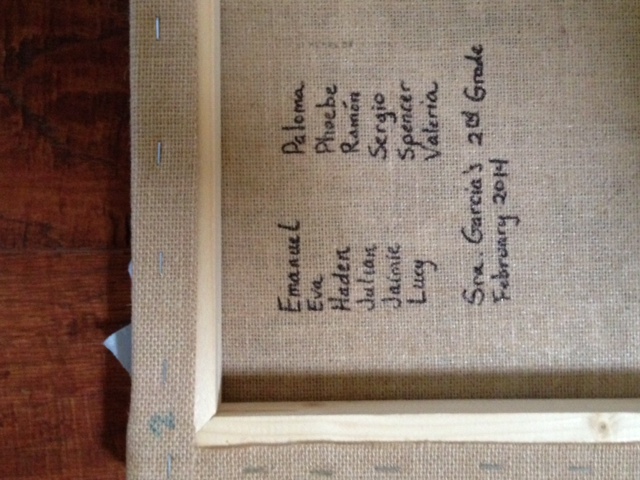 Emanuel Paloma
Eva Phoebe
Haden Ramón
Julian Sergio
Jaimie Spencer
Lucy Valeria
Sra. Garcia's 2nd Grade
February 2014